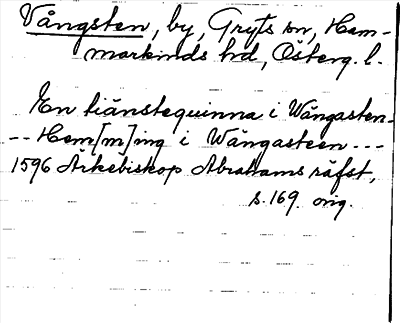 Vångsten, by, Gryts sn, Ham-
markinds hd, Österg. l.
En tiänstequinna i Wångasten.
-- Hem[m]ing i Wångasteen ---
1596 Ärkebiskop Abrahams räfst,
s. 169. orig.